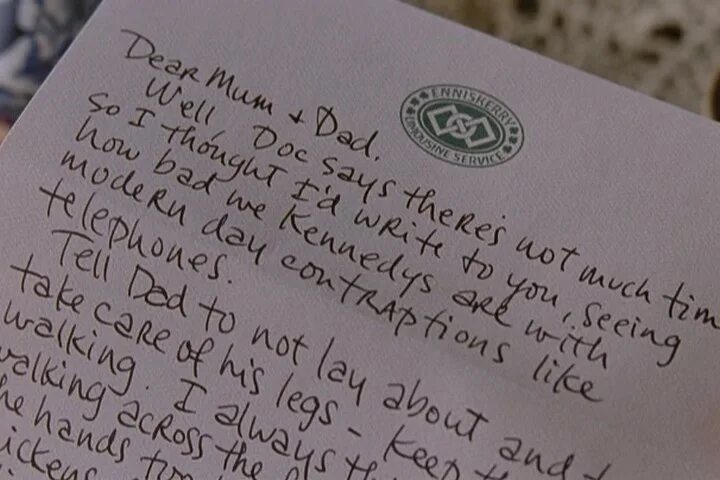 ENNISKERRY
LIMOUSINE SERVICE
Dear Mum + Dad.
Well Doc says there's not much tim
so I thought I'd write to you, seeing
how bad we Kennedys are with
modern day contraptions like
telephones.
Tell Dad to not lay about and t
take care of his legs - keep th
walking. I always th
walking across the
he hands to
ickens